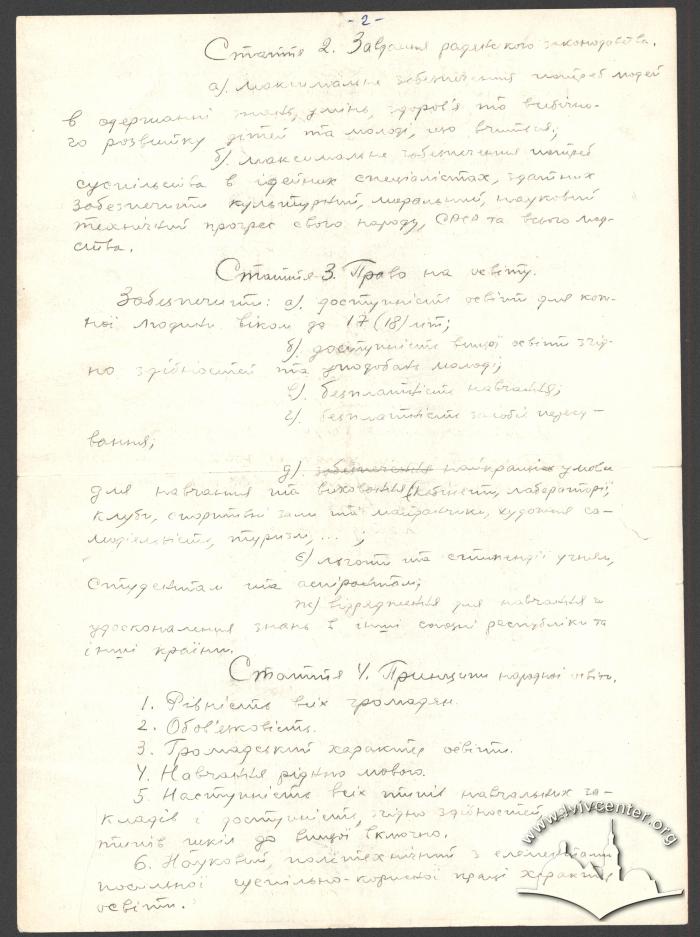 - 2 -
Стаття 2. Завдання радянського законодавства.
а). максимальне забезпечення потреб людей
в одержанні знань, умінь, здоров'я та всебічно-
го розвитку дітей та молоді, що вчиться;
б). максимальне забезпечення потреб
суспільства в ідейних спеціалістах, здатних
забезпечити культурний, моральний, науковий
технічний прогрес свого народу, СРСР та всього люд-
ства.
Стаття 3. Право на освіту.
Забезпечити: а). доступність освіти для кож-
ної людини віком до 17 (18) літ;
б). доступність вищої освіти згід-
но здібностей та уподобань молоді;
в). безплатність навчання;
г). безплатність засобів пересу-
вання;
д). забезпечення найкращих умови
для навчання та виховання (кабінети, лабораторії,
клуби, спортивні зали та майданчики, художня са-
модіяльність, туризм, ... ;
є) льготи та стипендії учням,
студентам та аспірантам;
ж) відрядження для навчання й
удосконалення знань в інші союзні республіки та
інші країни.
Стаття 4. Принципи народної освіти.
1. Рівність всіх громадян.
2. Обов'язковість.
3. Громадський характер освіти.
4. Навчання рідною мовою.
5. Наступність всіх типів навчальних за-
кладів і доступність, згідно здібностей,
типів шкіл до вищої включно.
6. Науковий, політехнічний з елементами
посильної суспільно-корисної праці характер
освіти.
www.lvivcenter.org